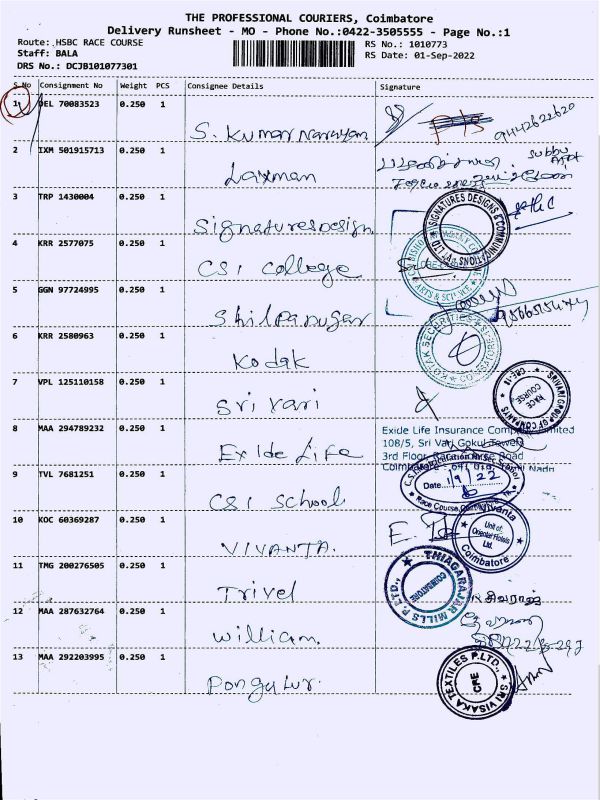 THE PROFESSIONAL COURIERS, Coimbatore
Delivery Runsheet - MO - Phone No.:0422-3505555 - Page No.:1
Route: HSBC RACE COURSE
Staff: BALA
DRS No.: DCJB101077301
RS No.: 1010773
RS Date: 01-Sep-2022
S.No Consignment No Weight PCS Consignee Details Signature
1 DEL 70083523 0.250 1
S. Kumar Narayan
9442622620
2 IXM 501915713 0.250 1
Laxman
Subbu
3 TRP 1430004 0.250 1
Signatures Design
SIGNATURES DESIGNS & COMMUNICATIONS
4 KRR 2577075 0.250 1
CSI College
ARTS & SCIENCE
5 GGN 97724995 0.250 1
Shilpa nugar
6 KRR 2580963 0.250 1
Kodak
KOTAK SECURITIES
COIMBATORE
7 VPL 125110158 0.250 1
Sri Vari
SRIVARI GROUP OF COMPANIES
RACE COURSE
8 MAA 294789232 0.250 1
Exide Life
Exide Life Insurance Company Limited
108/5, Sri Vari Gokul Towers
3rd Floor, Race Course Road
Coimbatore Tamil Nadu
9 TVL 7681251 0.250 1
CSI School
Date 1/9/22
10 KOC 60369287 0.250 1
VIVANTA.
Vivanta
Unit of:
Oriental Hotels
Ltd.
Coimbatore
11 TMG 200276505 0.250 1
Trivel
THIAGARAJAR MILLS P.LTD.,
COIMBATORE
12 MAA 287632764 0.250 1
William
13 MAA 292203995 0.250 1
Pongalur.
SRI VISAKA TEXTILES P.LTD.,
CBE